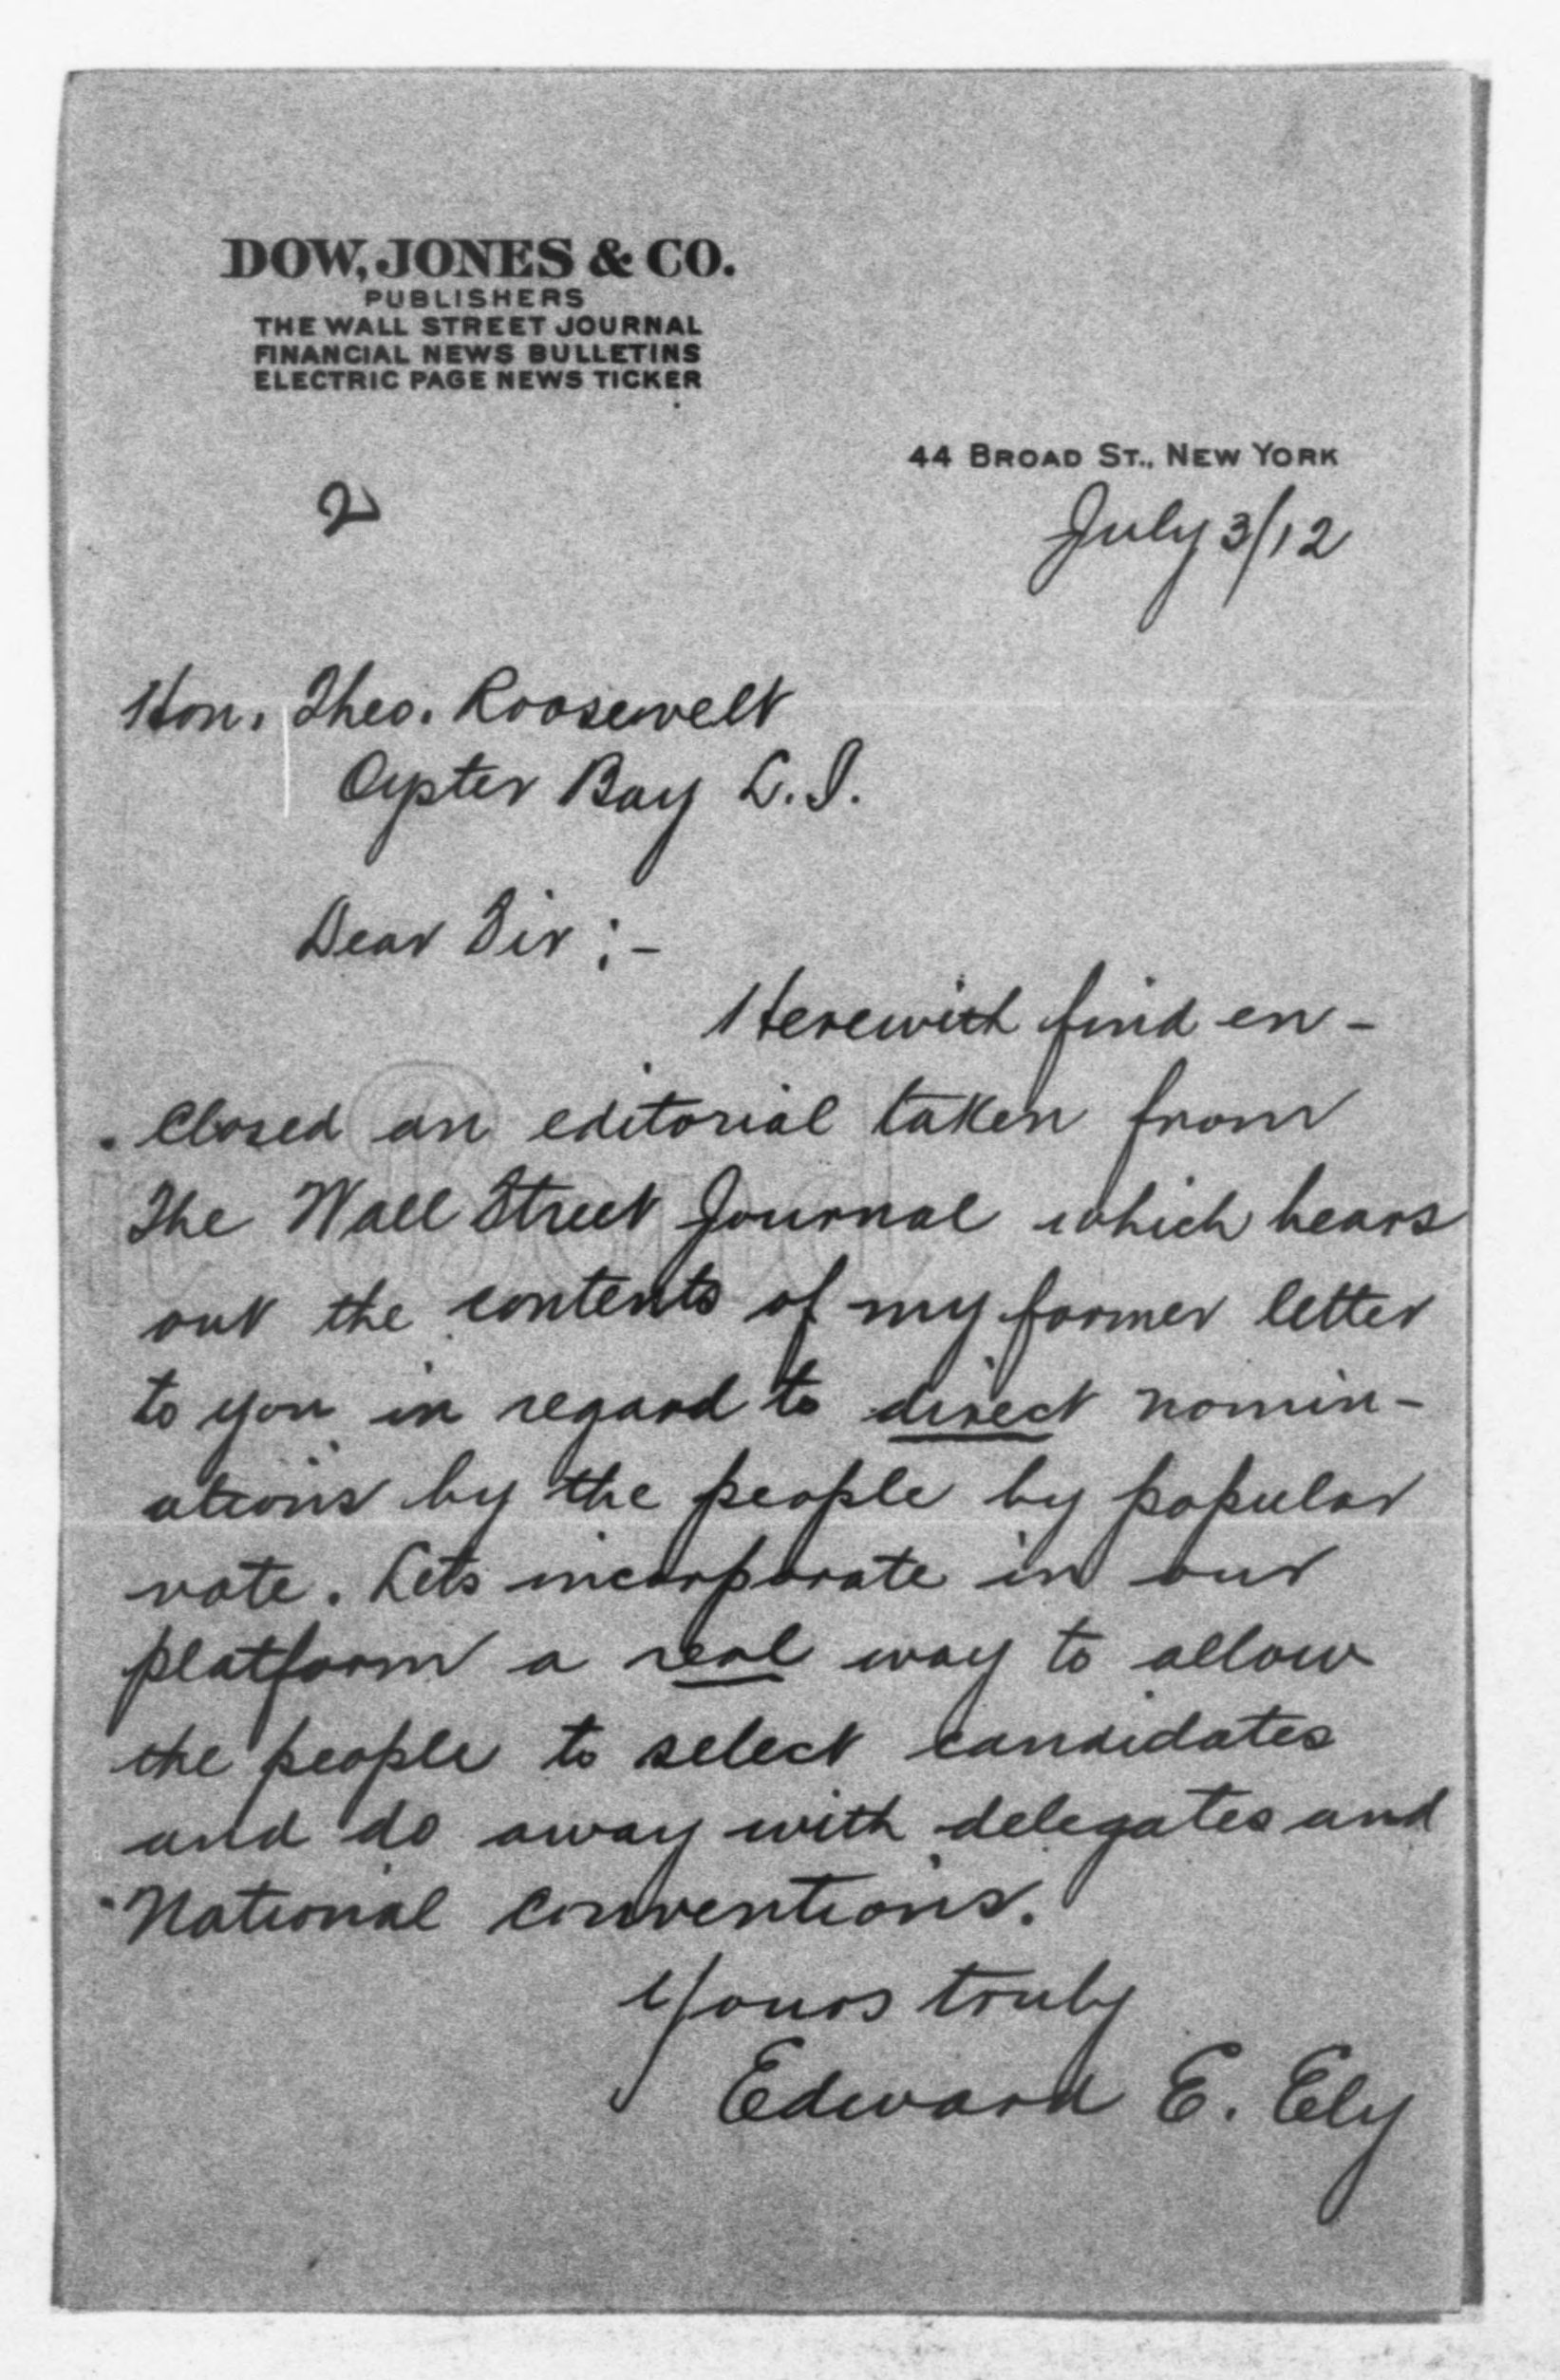 DOW, JONES & CO.
PUBLISHERS
THE WALL STREET JOURNAL
FINANCIAL NEWS BULLETINS
ELECTRIC PAGE NEWS TICKER
44 BROAD ST., NEW YORK
2
July 3/12
Hon. Theo. Roosevelt
Oyster Bay L.I.
Dear Sir :-
Herewith find en-
closed an editorial taken from
The Wall Street Journal which bears
out the contents of my former letter
to you in regard to direct nomin-
ations by the people by popular
vote. Lets incorporate in our
platform a real way to allow
the people to select candidates
and do away with delegates and
National conventions.
Yours truly
Edward E. Ely